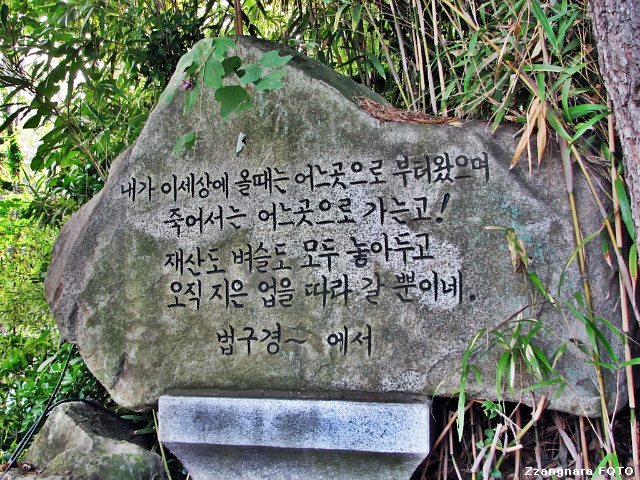 내가 이세상에 올때는 어느곳으로 부터왔으며
죽어서는 어느곳으로 가는고!
재산도 벼슬도 모두 놓아두고
오직 지은 업을 따라 갈 뿐이네.
법구경~ 에서
Zzangnara FOTO